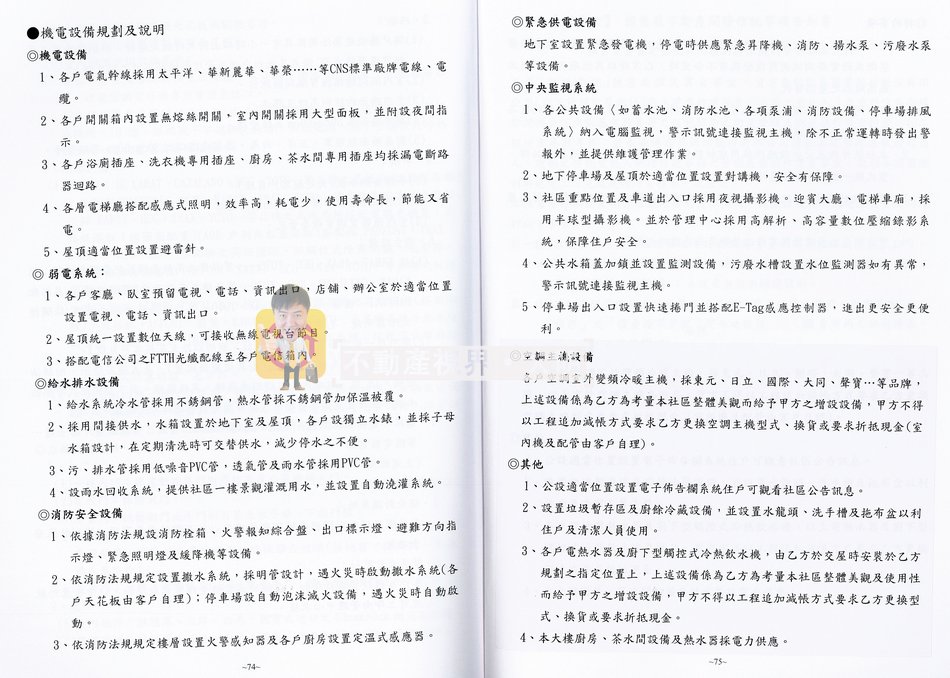 ●機電設備規劃及說明
◎機電設備
1、各戶電氣幹線採用太平洋、華新麗華、華榮……等CNS標準廠牌電線、電
纜。
2、各戶開關箱內設置無熔絲開關。室內開關採用大型面板,並附設夜間指
示。
3、各戶浴廁插座、洗衣機專用插座、廚房、茶水間專用插座均採漏電斷路
器迴路。
4、各層電梯廳搭配感應式照明,效率高,耗電少,使用壽命長,節能又省
電。
5、屋頂適當位置設置避雷針。
◎ 弱電系統:
1、各戶客廳、臥室預留電視、電話、資訊出口,店舖、辦公室於適當位置
設置電視、電話、資訊出口。
2、屋頂統一設置數位天線,可接收無線電視台節目。
3、搭配電信公司之FTTH光纖配線至各戶電信箱內。
◎給水排水設備
1、給水系統冷水管採用不銹鋼管,熱水管採不銹鋼管加保溫被覆。
2、採用間接供水,水箱設置於地下室及屋頂,各戶設獨立水錶,並採子母
水箱設計,在定期清洗時可交替供水,減少停水之不便。
3、污、排水管採用低噪音PVC管,透氣管及雨水管採用PVC管。
4、設雨水回收系統,提供社區一樓景觀灌溉用水,並設置自動澆灌系統。
◎消防安全設備
1、依據消防法規設消防栓箱、火警報知綜合盤、出口標示燈、避難方向指
示燈、緊急照明燈及緩降機等設備。
2、依消防法規規定設置撒水系統,採明管設計,遇火災時啟動撒水系統(各
戶天花板由客戶自理);停車場設自動泡沫滅火設備,遇火災時自動啟
動。
3、依消防法規規定樓層設置火警感知器及各戶廚房設置定溫式感應器。
~74~
◎緊急供電設備
地下室設置緊急發電機,停電時供應緊急昇降機、消防、揚水泵、污廢水泵
等設備。
◎中央監視系統
1、各公共設備〈如蓄水池、消防水池、各項泵浦、消防設備、停車場排風
系統〉納入電腦監視,警示訊號連接監視主機,除不正常運轉時發出警
報外,並提供維護管理作業。
2、地下停車場及屋頂於適當位置設置對講機,安全有保障。
3、社區重點位置及車道出入口採用夜視攝影機。迎賓大廳、電梯車廂,採
用半球型攝影機。並於管理中心採用高解析、高容量數位壓縮錄影系
統,保障住戶安全。
4、公共水箱蓋加鎖並設置監測設備,污廢水槽設置水位監測器如有異常,
警示訊號連接監視主機。
5、停車場出入口設置快速捲門並搭配E-Tag感應控制器,進出更安全更便
利。
不動產視界
◎空調主機設備
各戶空調室外變頻冷暖主機,採東元、日立、國際、大同、聲寶…等品牌,
上述設備係為乙方為考量本社區整體美觀而給予甲方之增設設備,甲方不得
以工程追加減帳方式要求乙方更換空調主機型式、換貨或要求折抵現金(室
內機及配管由客戶自理)。
◎其他
1、公設適當位置設置電子佈告欄系統住戶可觀看社區公告訊息。
2、設置垃圾暫存區及廚餘冷藏設備,並設置水龍頭、洗手槽及拖布盆以利
住戶及清潔人員使用。
3、各戶電熱水器及廚下型觸控式冷熱飲水機,由乙方於交屋時安裝於乙方
規劃之指定位置上,上述設備係為乙方為考量本社區整體美觀及使用性
而給予甲方之增設設備,甲方不得以工程追加減帳方式要求乙方更換型
式、換貨或要求折抵現金。
4、本大樓廚房、茶水間設備及熱水器採電力供應。
~75~